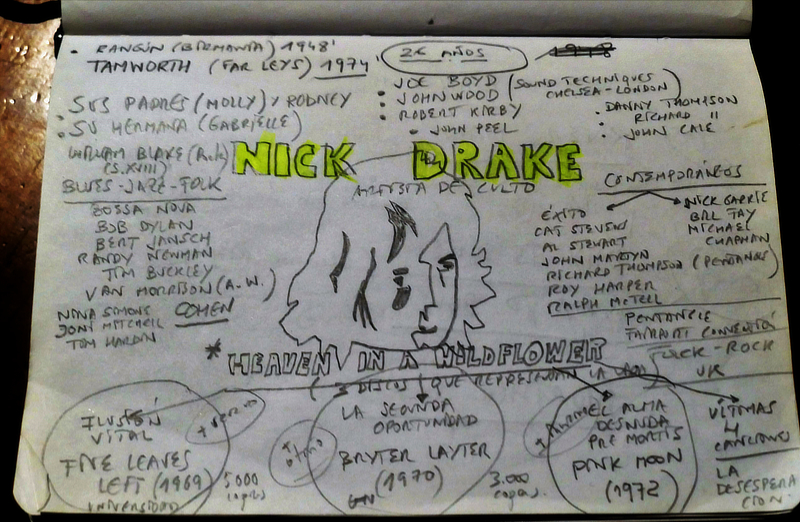 RANGÚN (BIRMANIA) 1948'
TAMWORTH (FAR LEYS) 1974'
26 AÑOS
1948
SUS PADRES (MOLLY) Y RODNEY
SU HERMANA (GABRIELLE)
WILLIAM BLAKE
(S. XVIII)
BLUES-JAZZ-FOLK
BOSSA NOVA
BOB DYLAN
BERT JANSCH
RANDY NEWMAN
TIM BUCKLEY
VAN MORRISON (A.W.)
NINA SIMONE COHEN
JONI MITCHELL
TOM HARDIN
JOE BOYD (SOUND TECHNIQUES
CHELSEA-LONDON)
JOHN WOOD
ROBERT KIRBY
JOHN PEEL
DANNY THOMPSON
RICHARD "
JOHN CALE
NICK DRAKE
ARTISTA DE CULTO
CONTEMPORÁNEOS
ÉXITO
CAT STEVENS
AL STEWART
JOHN MARTYN
RICHARD THOMPSON (PENTANGLE)
ROY HARPER
RALPH McTELL
NICK GARRIE
BILL FAY
MICHAEL
CHAPMAN
PENTANGLE
FAIRPORT CONVENTION
FOLK-ROCK
UK
* HEAVEN IN A WILDFLOWER
(3 DISCOS QUE REPRESENTAN LA VIDA)
ILUSIÓN
VITAL
FIVE LEAVES
LEFT (1969)
UNIVERSIDAD
5000
copias
LA SEGUNDA
OPORTUNIDAD
BRYTER LAYTER
(1970)
3.000
copias
EL ALMA
DESNUDA
PRE MORTIS
PINK MOON
(1972)
4
CANCIONES
LA
DESESPERA
CIÓN